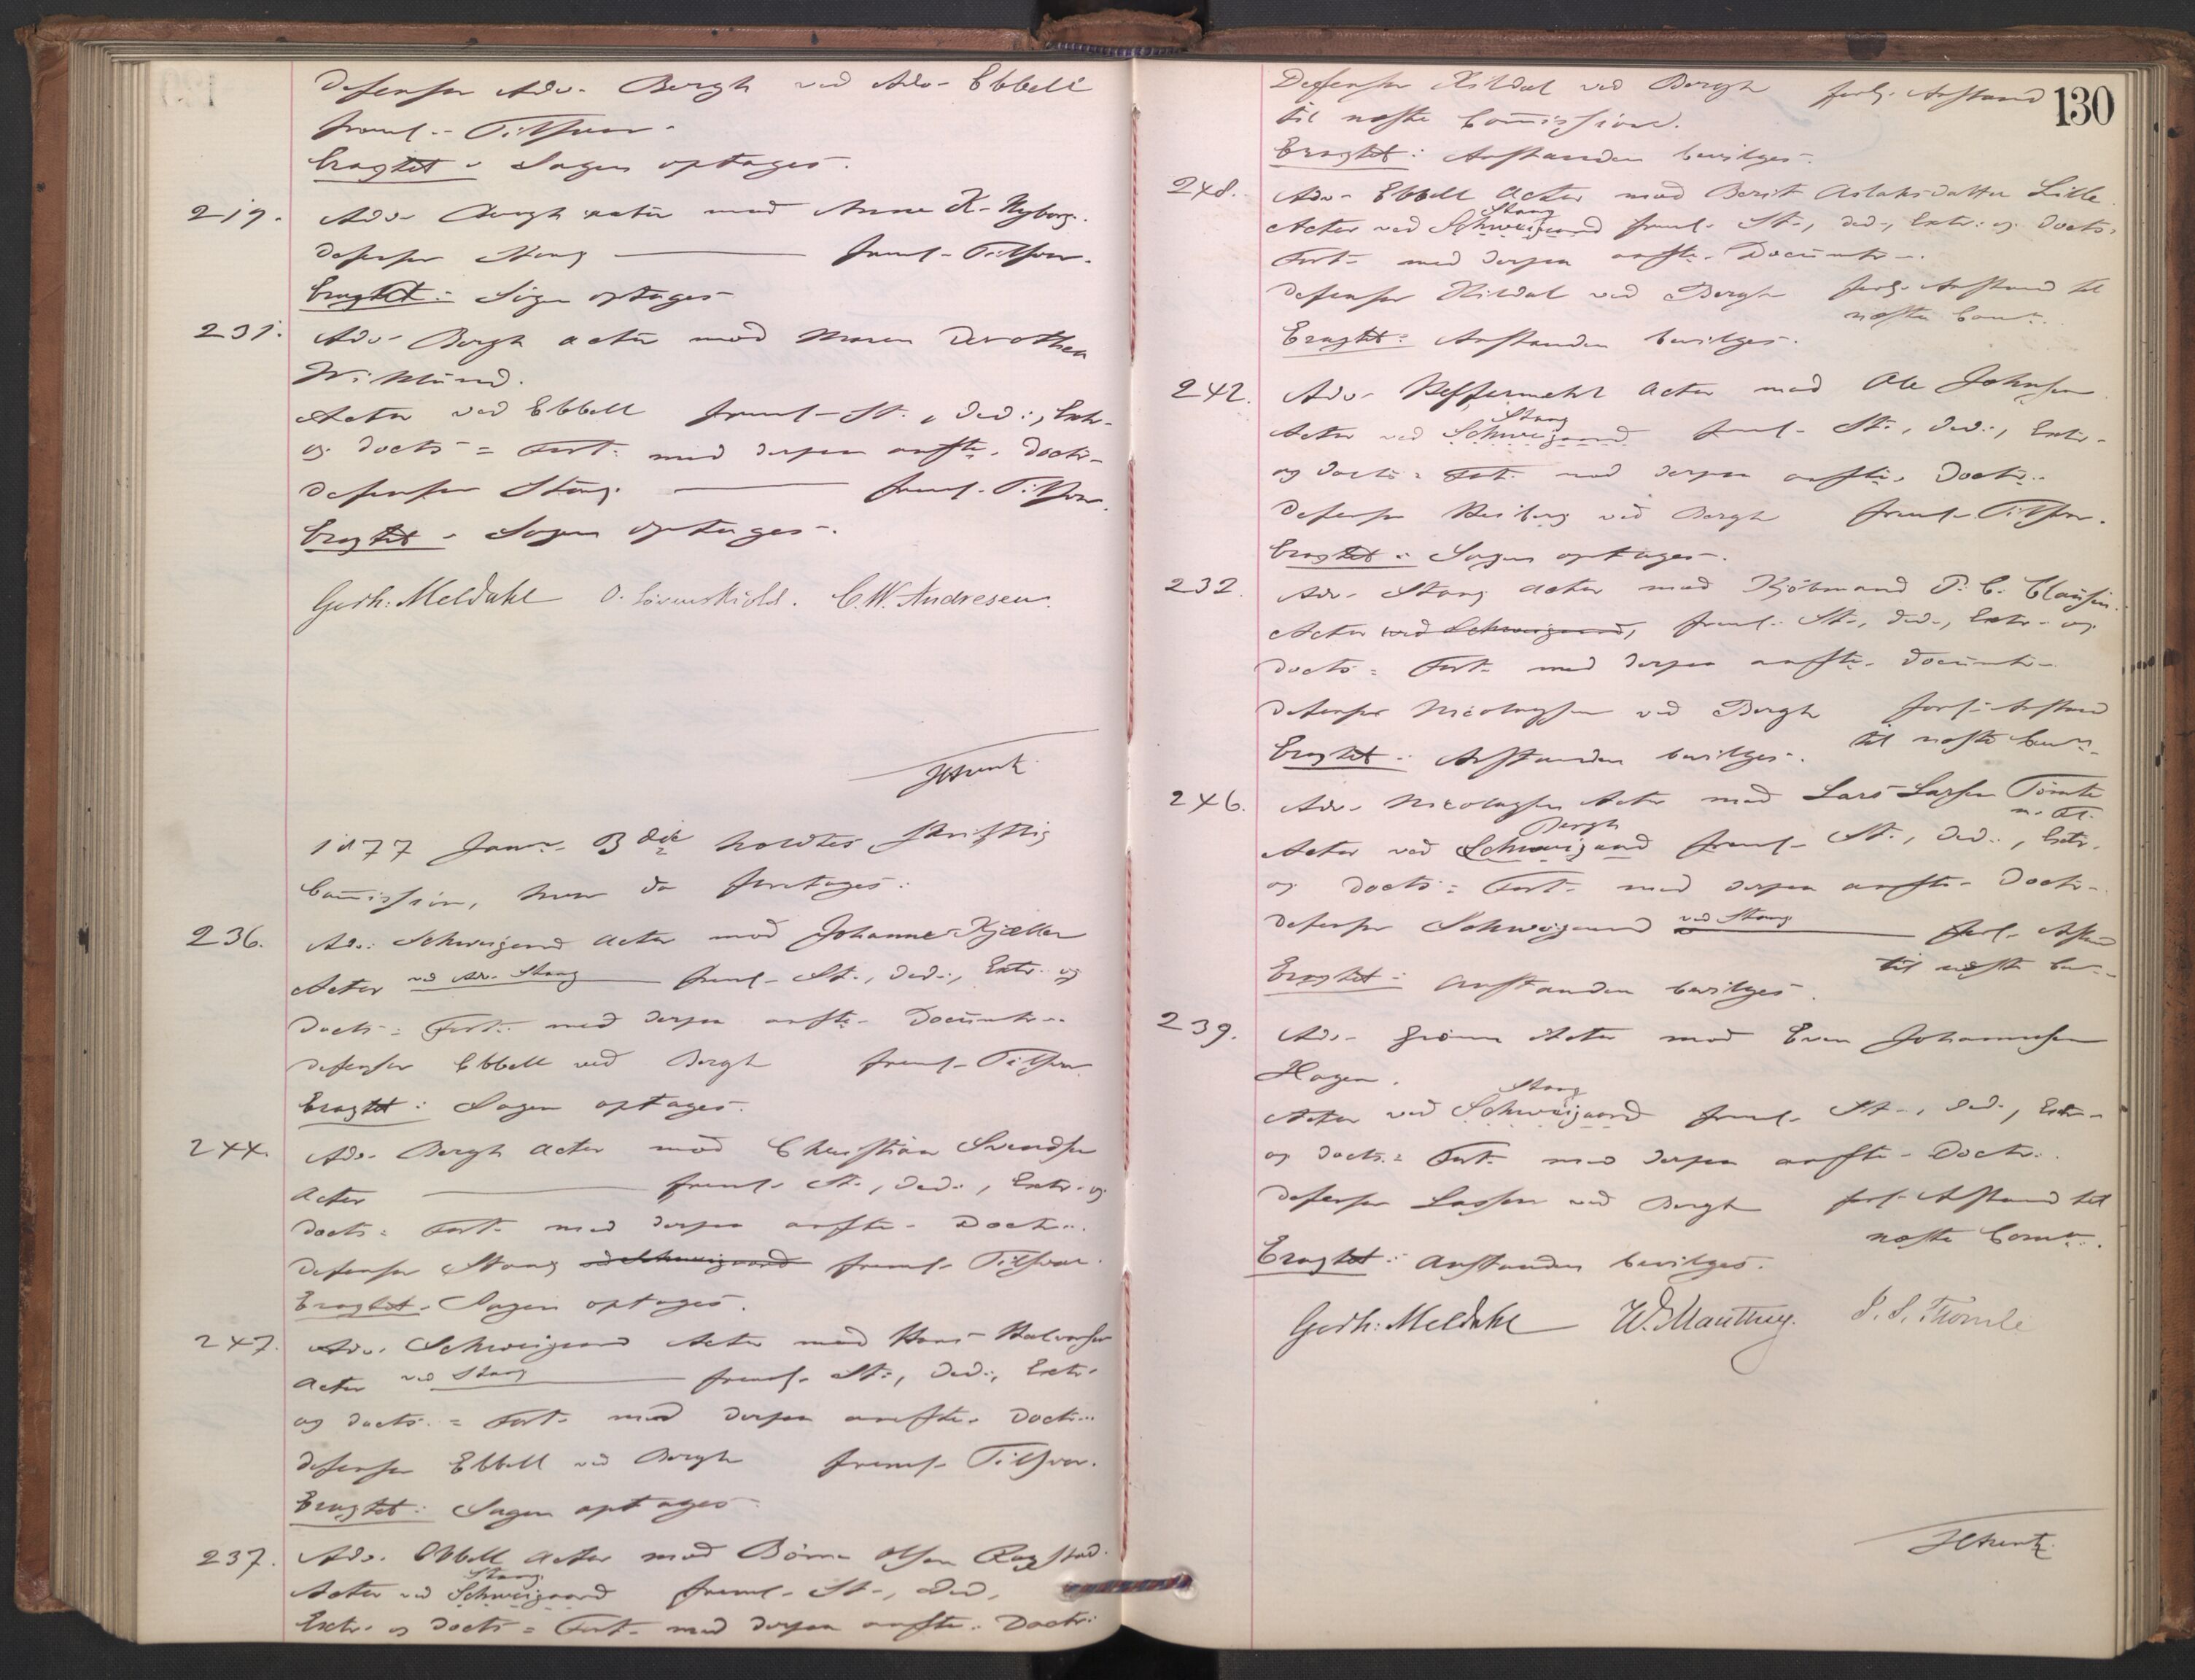 Defensor Adv. Bergh ved Adv. Ebbell
freml. Tilsvar.
Eragtet: Sagen optages.
219. Adv. Bergh actor mod Anne K. Nyborg.
Defensor Stang freml. Tilsvar.
Eragtet: Sagen optages
231. Adv. Bergh actor mod Maren Dorothea
Wiklund.
Actor ved Ebbell freml. St., Ded., Extr.
og Docts: Fort. med derpaa anfte. Doctr.
Defensor Stang freml. Tilsvar.
Eragtet: Sagen optages.
Gerh: Meldahl O. Løvenskiold. C. W. Andresen.
1877 Janr. 3die holdtes skriftlig
Commission, hvor da foretages:
236. Adv. Schweigaard actor mod Johanne Kjæller
Actor ved Adv. Stang freml. St., Ded., Extr. og
Docts: Fort. med derpaa anfte. Documtr.
Defensor Ebbell ved Bergh freml. Tilsvar.
Eragtet: Sagen optages.
244. Adv. Bergh actor mod Christian Svendsen
Actor freml. St., Ded., Extr. og
Docts: Fort. med derpaa anfte. Doctr.
Defensor Stang ved Schweigaard freml. Tilsvar.
Eragtet: Sagen optages.
247. Adv. Schweigaard Actor mod Hans Halvorsen
Actor ved Stang freml. St., Ded., Extr.
og Docts: Fort. med derpaa anfte. Doctr.
Defensor Ebbell ved Bergh freml. Tilsvar.
Eragtet: Sagen optages.
237. Adv. Ebbell actor mod Olsen
Stang
Actor ved Schweigaard freml. St., Ded.,
Extr. og Docts: Fort. med derpaa anfte. Doctr.
130
Defensor Kildal ved Bergh forl. Anstand
til næste Commission.
Eragtet: Anstanden bevilges.
248. Adv. Ebbell actor mod Berit Aslaksdatter Lille
Stang
Actor ved Schweigaard freml. St., Ded., Extr. og Docts:
Fort. med derpaa anfte. Documtr.
Defensor Kildal ved Bergh forl. Anstand til
næste Comn.
Eragtet: Anstanden bevilges.
242. Adv. Keffermehl actor mod Ole Johnsen
Stang
Actor ved Schweigaard freml. St., Ded., Extr.
og Docts: Fort. med derpaa anfte. Doctr.
Defensor Heiberg ved Bergh freml. Tilsvar.
Eragtet: Sagen optages.
232. Adv. Stang actor mod Kjøbmand P. C. Clausen.
Actor ved Schweigaard, freml. St., Ded., Extr. og
Docts: Fort. med derpaa anfte. Documtr.
Defensor Nicolaysen ved Bergh forl. Anstand
til næste Comn.
Eragtet: Anstanden bevilges.
246. Adv. Nicolaysen Actor mod Lars Larsen Tomte
m. Fl.
Bergh
Actor ved Schweigaard freml. St., Ded., Extr.
og Docts: Fort. med derpaa anfte. Doctr.
Defensor Schweigaard ved Stang forl. Anstand
til næste Comn.
Eragtet: Anstanden bevilges.
239. Adv. Grønn Actor mod Even Johannesen
Hagen.
Stang
Actor ved Schweigaard freml. St., Ded., Extr.
og Docts: Fort. med derpaa anfte. Doctr.
Defensor Lassen ved Bergh forl. Anstand til
næste Comn.
Eragtet: Anstanden bevilges.
Gerh: Meldahl W. Manthey. S. S. Thomle